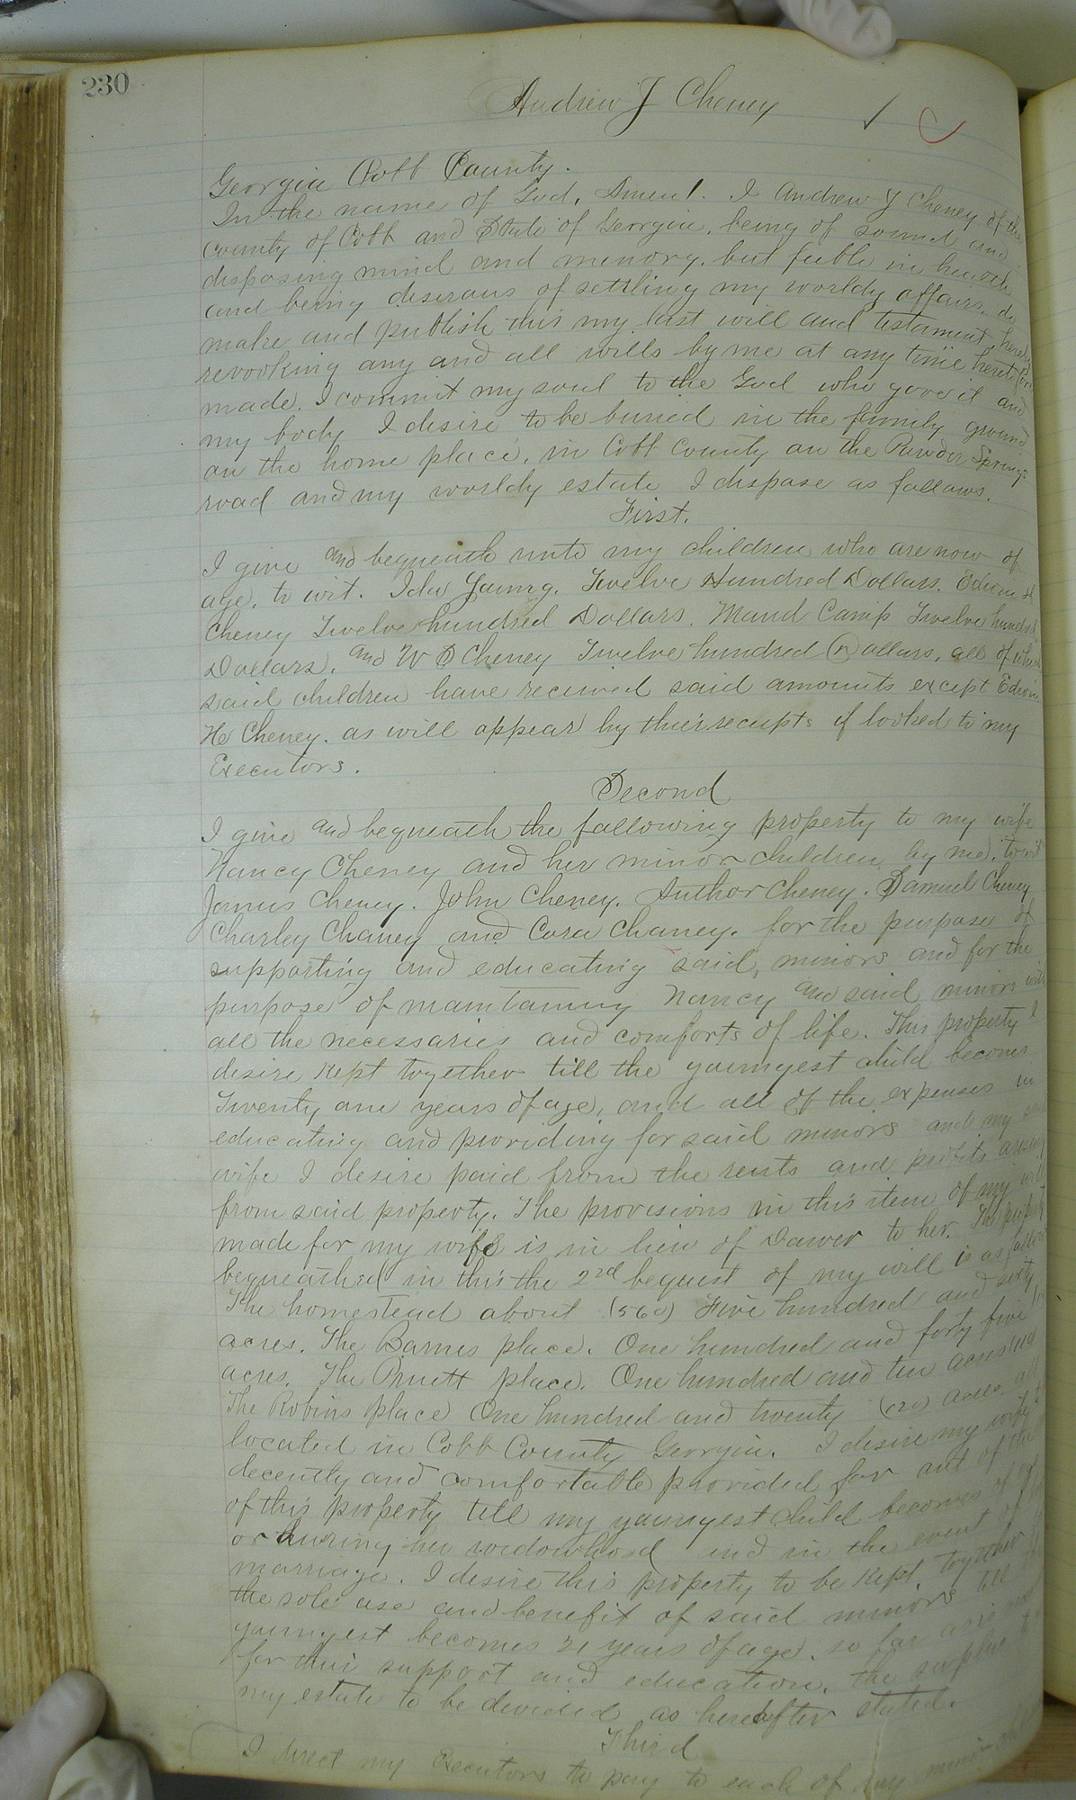 230
Andrew J Cheney
Georgia Cobb County.
In the name of God, Amen!. I Andrew J Cheney of the
County of Cobb and State of Georgia, being of sound and
disposing mind and memory, but feeble in health
and being desirous of settling my worldy affairs, do
make and publish this my last will and testament, hereby
revooking any and all wills by me at any time heretofore
made. I commit my soul to the God who gave it and
my body I desire to be buried in the family ground
on the home place, in Cobb County on the Pawder Springs
road and my worldy estate I dispose as follows.
First.
I give and bequeath unto my children who are now of
age, to wit. Ida Young. Twelve Hundred Dollars. Edwin H
Cheney Twelve hundred Dollars. Maud Camp Twelve hundred
Dollars, and W P Cheney Twelve hundred Dollars, all of which
said children have received said amounts except Edwin
H Cheney. as will appear by their receipts if looked to my
Executors.
Second
I give and bequeath the following property to my wife
Nancy Cheney and her minor children by me, to wit
James Cheney. John Cheney. Author Cheney. Samuel Cheney
Charley Chaney and Cora Chaney. for the purpose of
supporting and educating said minors and for the
purpose of maintaining Nancy and said minors with
all the necessaries and comforts of life. This property I
desire kept together till the youngest child becomes
Twenty one years of age, and all of the expenses in
educating and providing for said minors and my
wife I desire paid from the rents and profits arising
from said property. The provisions in this item of my will
made for my wife is in lieu of Dower to her. The
bequeathed in this the 2nd bequest of my will is as follows
The homestead about (560) Five hundred and sixty
acres. The Barnes place. One hundred and forty five
acres. The Pruett place. One hundred and ten acres
The Robins place One hundred and twenty (120) acres
located in Cobb County Georgia. I desire my wife
decently and comfortable provided for out of the
of this property till my youngest child becomes of
or during her widowhood and in the event of
marriage. I desire this property to be kept together
the sole use and benefit of said minors till
youngest becomes 21 years of age. so far as is
for their support and education. the surplus
my estate to be devided as hereafter stated.
Third
I direct my Executors to pay to each of my minor